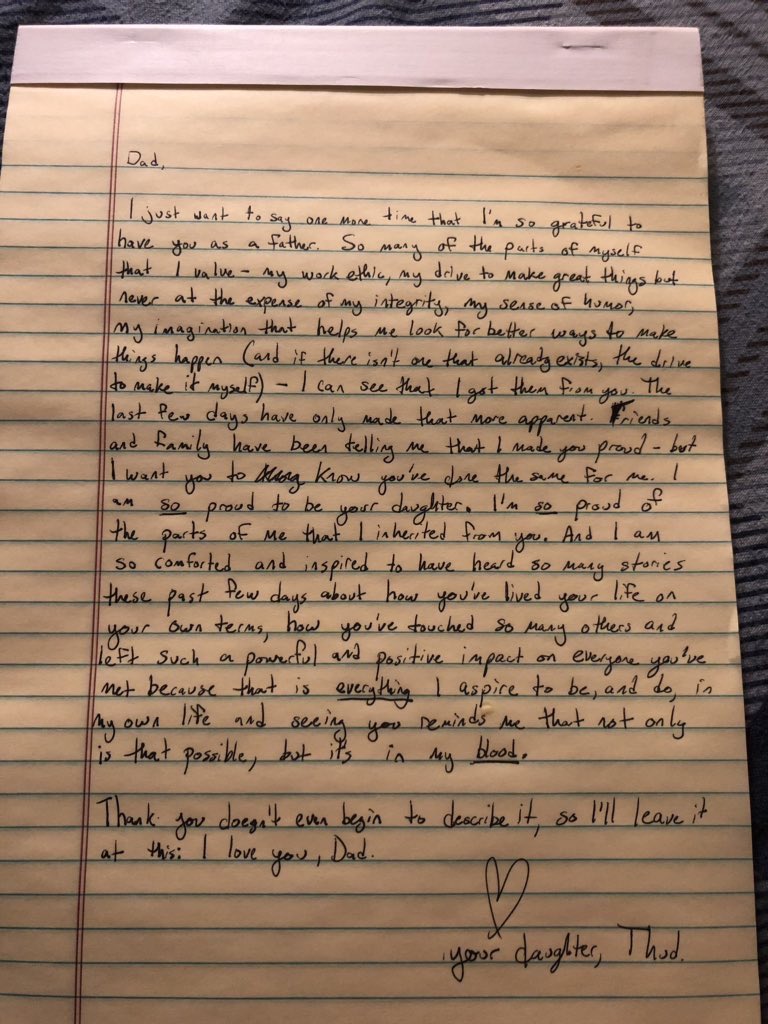 Dad,
I just want to say one more time that I'm so grateful to
have you as a father. So many of the parts of myself
that I value - my work ethic, my drive to make great things but
never at the expense of my integrity, my sense of humor,
my imagination that helps me look for better ways to make
things happen (and if there isn't one that already exists, the drive
to make it myself) - I can see that I got them from you. The
last few days have only made that more apparent. Friends
and family have been telling me that I made you proud - but
I want you to know you've done the same for me. I
am so proud to be your daughter. I'm so proud of
the parts of me that I inherited from you. And I am
so comforted and inspired to have heard so many stories
these past few days about how you've lived your life on
your own terms, how you've touched so many others and
left such a powerful and positive impact on everyone you've
met because that is everything I aspire to be, and do, in
my own life and seeing you reminds me that not only
is that possible, but it's in my blood.
Thank you doesn't even begin to describe it, so I'll leave it
at this: I love you, Dad.
your daughter, Thud.